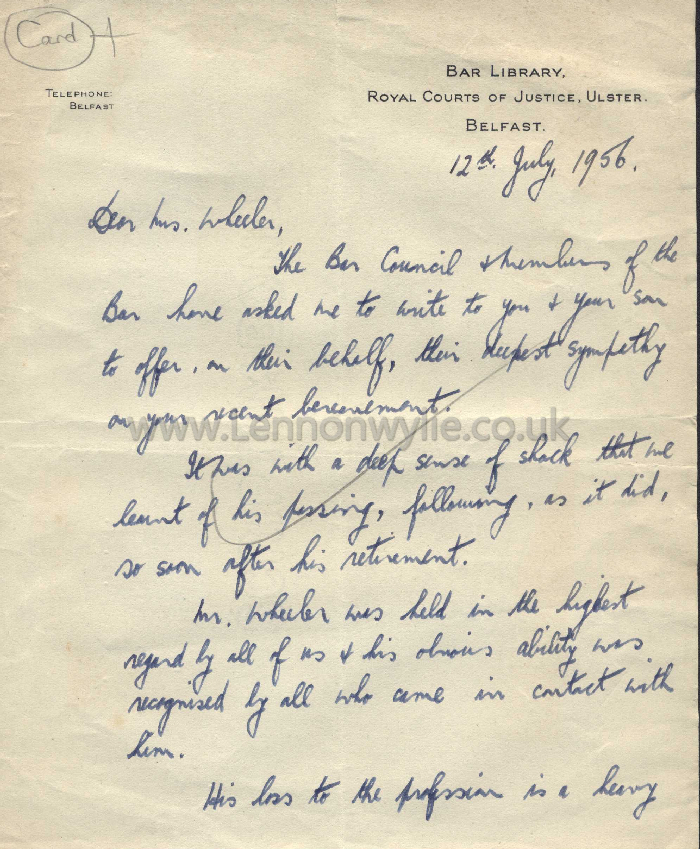 Card
TELEPHONE:
BELFAST
BAR LIBRARY,
ROYAL COURTS OF JUSTICE, ULSTER.
BELFAST.
12th July, 1956.
Dear Mrs. Wheeler,
The Bar Council & members of the
Bar have asked me to write to you & your son
to offer, on their behalf, their deepest sympathy
on your recent bereavement.
www.Lennonwylie.co.uk
It was with a deep sense of shock that we
learnt of his passing, following, as it did,
so soon after his retirement.
Mr. Wheeler was held in the highest
regard by all of us & his obvious ability was
recognised by all who came in contact with
him.
His loss to the profession is a heavy